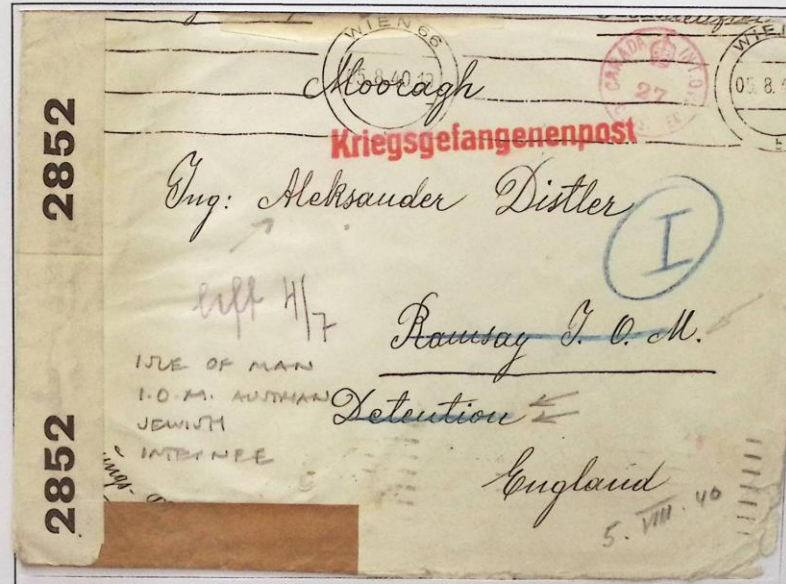 WIEN 66
05.8.40
CANADA
27
WIEN
05.8.4
Mooragh
Kriegsgefangenenpost
Ing: Aleksander Distler
I
left 4/7
Ramsay I. O. M.
ISLE OF MAN
I.O.M. AUSTRIAN
JEWISH
INTERNEE
Detention
England
5. VIII. 40
2852
2852